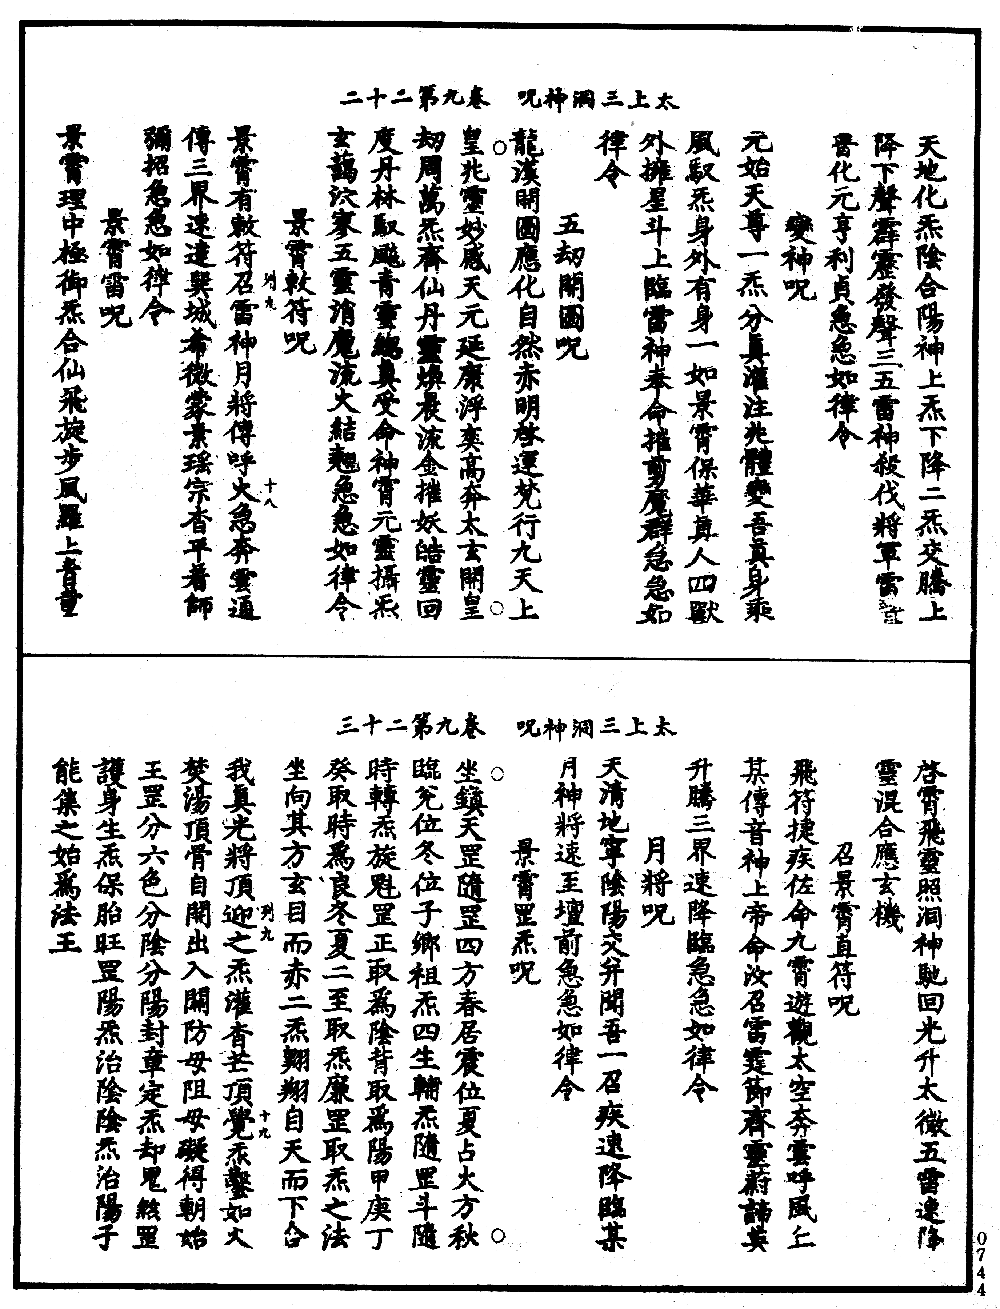 太上三洞神呪　卷九第二十二
天地化炁陰合陽神上炁下降二炁交騰上
降下聲霹靂發聲三五雷神殺伐將軍雷
晉化元亨利貞急急如律令
變神呪
元始天尊一炁分真灌注兆體變吾真身乘
風馭炁身外有身一如景霄保華真人四獸
外擁星斗上臨雷神奉命摧剪魔群急急如
律令
五劫開圖呪
龍漢開圖應化自然赤明啓運梵行九天上
皇兆靈妙感天元延康浮奕高奔太玄開皇
劫周萬炁齊仙丹靈煥晨流金摧妖皓靈回
度丹林馭飈青靈總真受命神霄元靈攝炁
玄鬍泬寥五靈消魔流火結翹急急如律令
景霄敕符呪
景霄有敕符召雷神月將傳呼火急奔雲通
傳三界速達與城希微蒙景瑶宗杳平着師
彌招急急如律令
景霄雷呪
景霄理中極御炁合仙飛旋步風羅上音童
列九
十八
太上三洞神呪　卷九第二十三
啓霄飛靈照洞神馳回光升太微五雷速降
靈混合應玄機
召景霄直符呪
飛符捷疾佐命九霄遊觀太空奔雲呼風仁
某傳音神上帝命汝召雷霆節齊靈蔚諦莫
升騰三界速降臨急急如律令
月將呪
天清地寧陰陽交并聞吾一召疾速降臨某
月神將速至壇前急急如律令
景霄罡炁呪
坐鎮天罡隨罡四方春居震位夏占火方秋
臨兊位冬位子鄉祖炁四生輔炁隨罡斗隨
時轉炁旋魁罡正取爲陰背取爲陽甲庚丁
癸取時爲良冬夏二至取炁廉罡取炁之法
坐向其方玄目而赤二炁翺翔自天而下合
我真光將頂迎之炁灌杳芒頂覺炁鑿如火
焚湯頂骨自開出入關防毋阻毋礙得朝始
王罡分六色分陰分陽封章定炁却鬼
罡
護身生炁保胎旺罡陽炁治陰陰炁治陽子
能集之始爲法王
列九
十九
0744